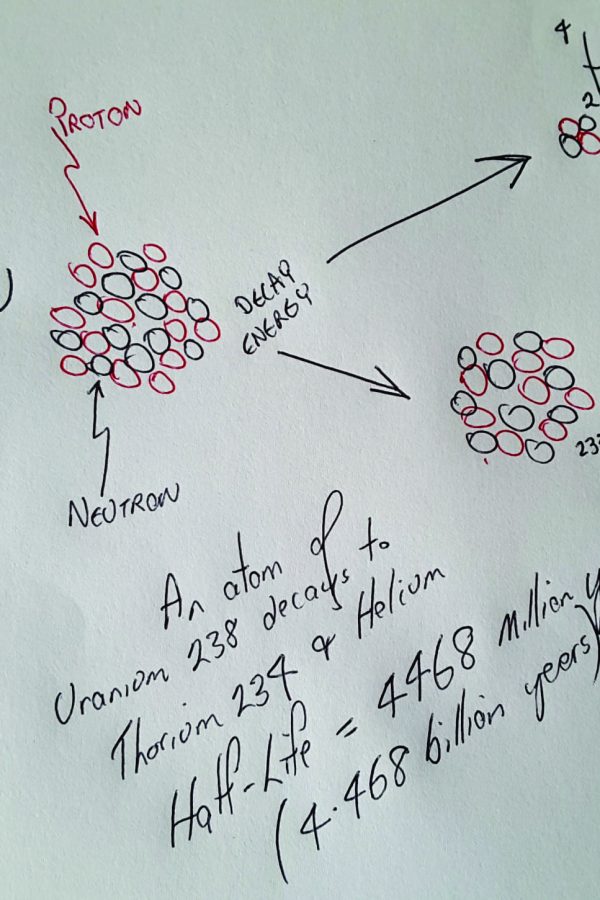 4
2
PROTON
DECAY
ENERGY
NEUTRON
An atom of
Uranium 238 decays to
Thorium 234 & Helium
Half-Life = 4468 Million y
(4.468 billion years)